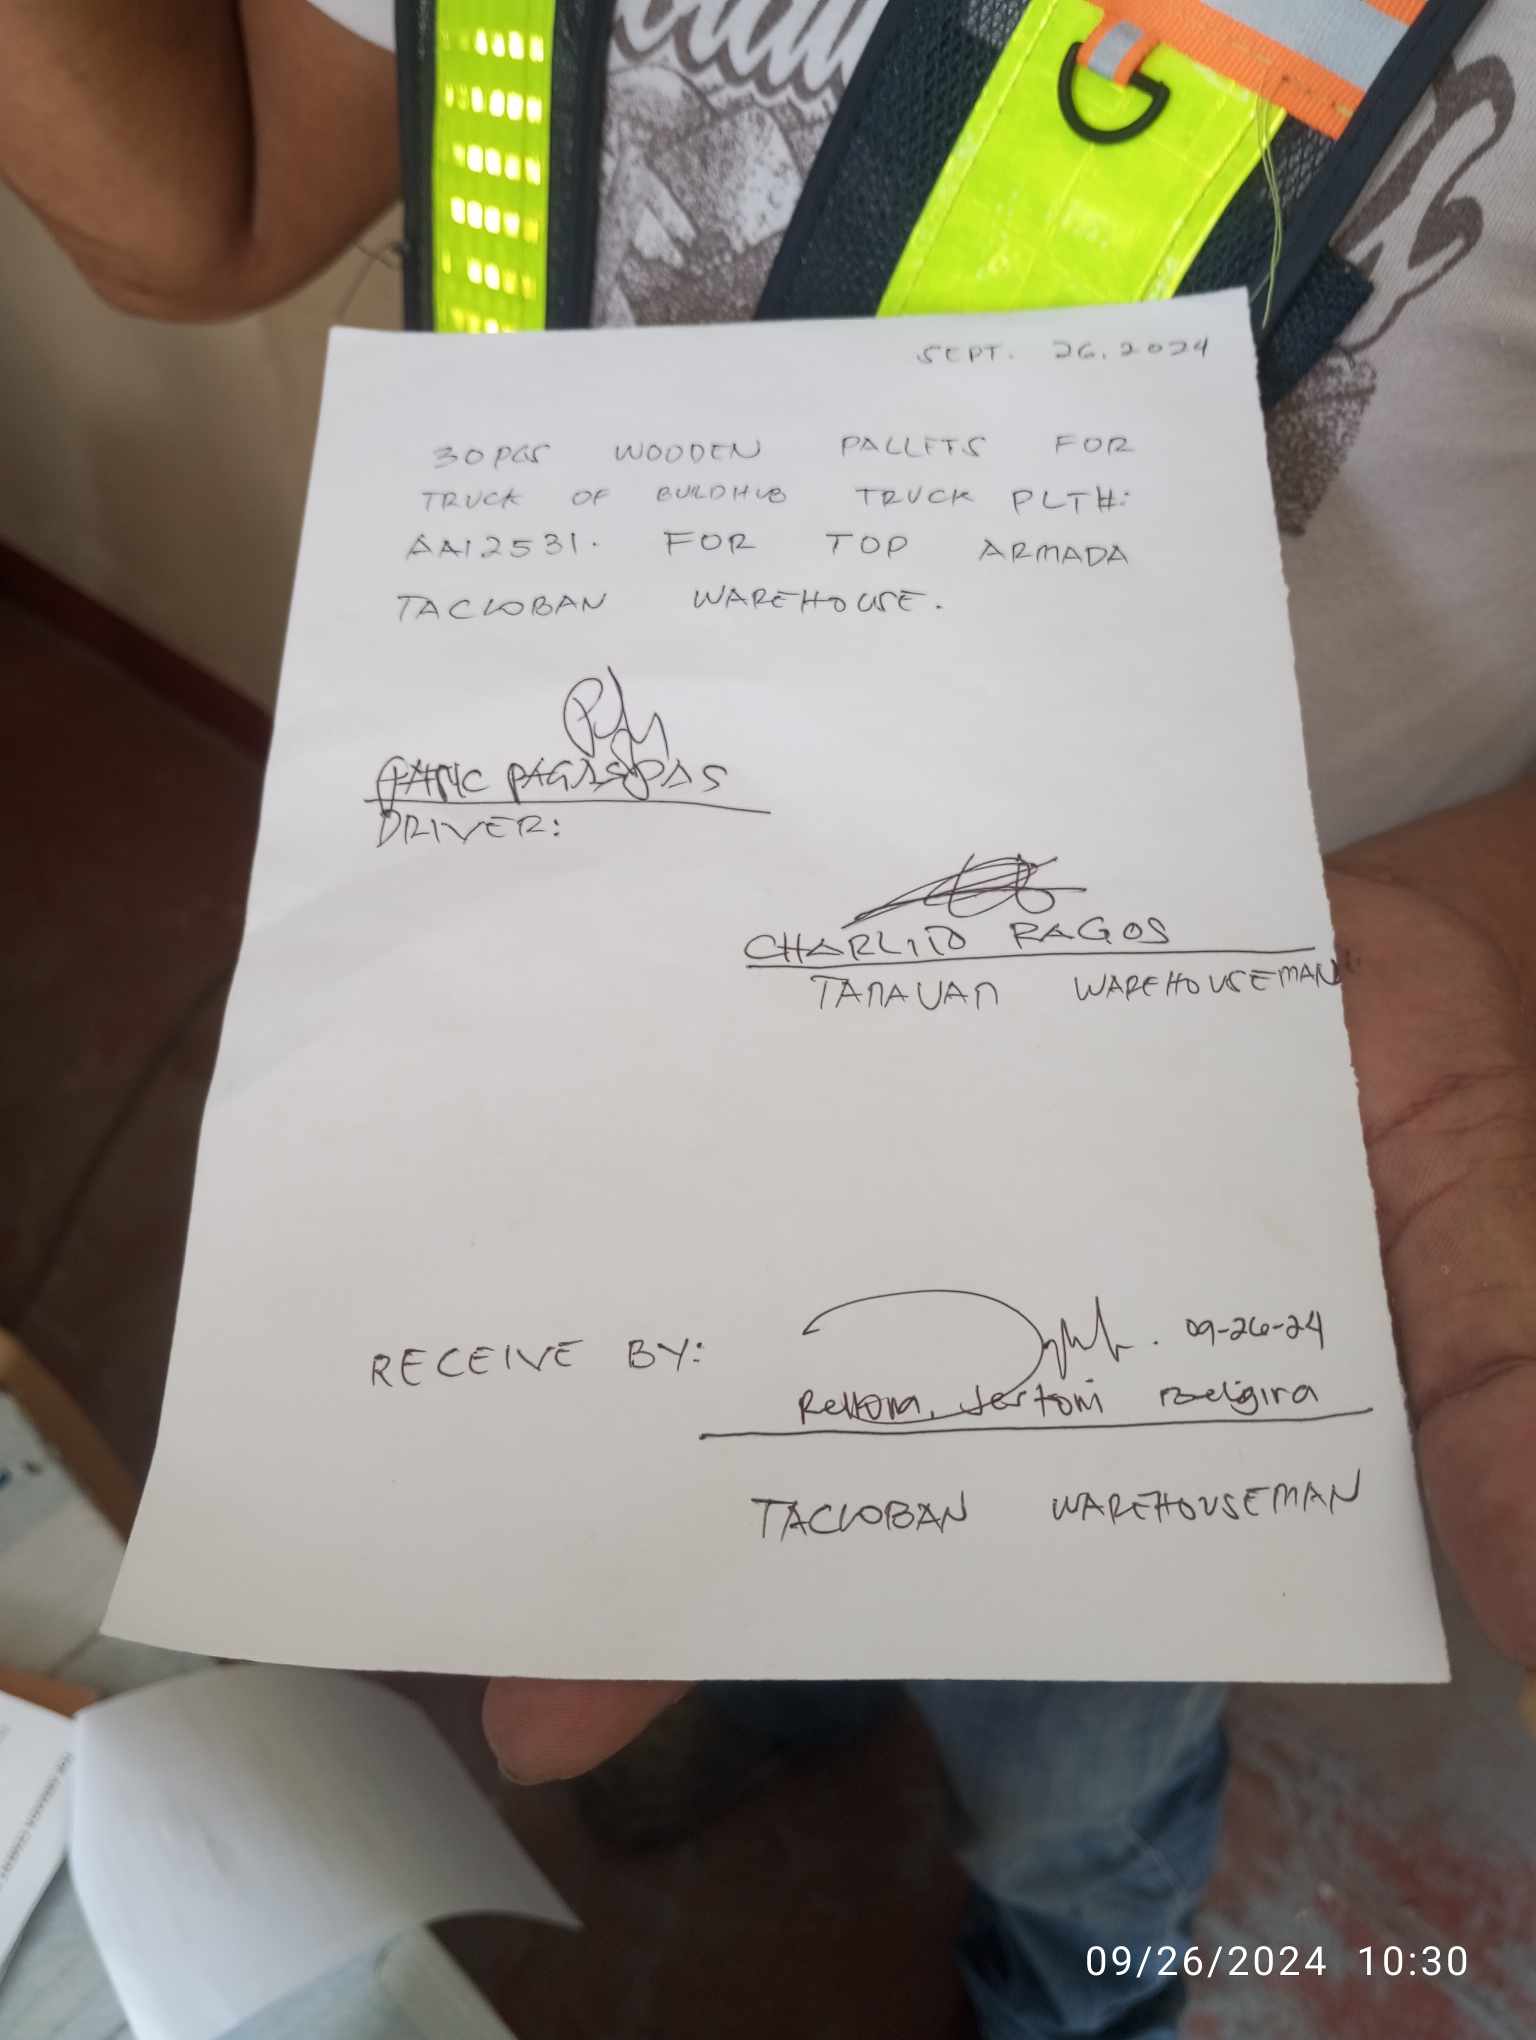 SEPT. 26, 2024
30PCS WOODEN PALLETS FOR
TRUCK OF BUILDHUB TRUCK PLT#:
AAI2531. FOR TOP ARMADA
TACLOBAN WAREHOUSE.
PAGASPAS
DRIVER:
CHARLITO RAGOS
TANAUAN WAREHOUSEMAN
RECEIVE BY:
09-26-24
TACLOBAN WAREHOUSEMAN
09/26/2024 10:30